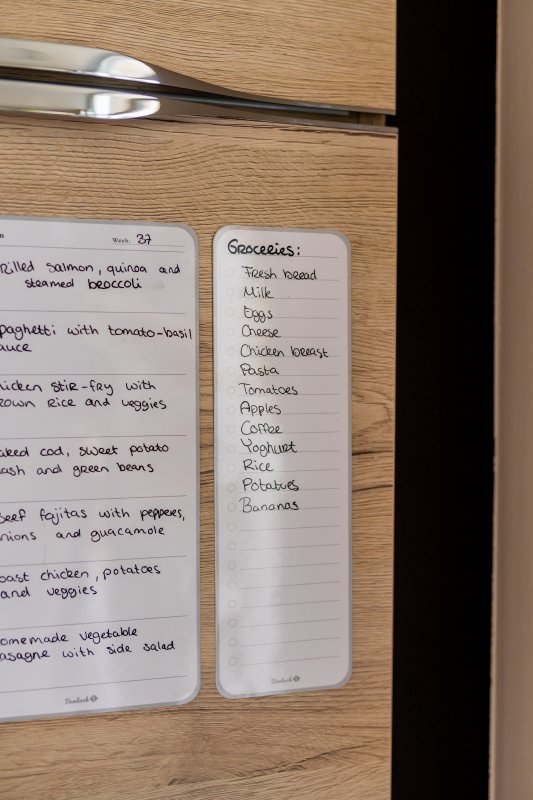 Week: 37
rilled salmon, quinoa and
steamed broccoli
paghetti with tomato-basil
auce
hicken stir-fry with
rown rice and veggies
aked cod, sweet potato
ash and green beans
Beef fajitas with peppers,
nions and guacamole
oast chicken, potatoes
and veggies
omemade vegetable
asagne with side salad
Bambook
Groceries:
Fresh bread
Milk
Eggs
Cheese
Chicken breast
Pasta
Tomatoes
Apples
Coffee
Yoghurt
Rice
Potatoes
Bananas
Bambook